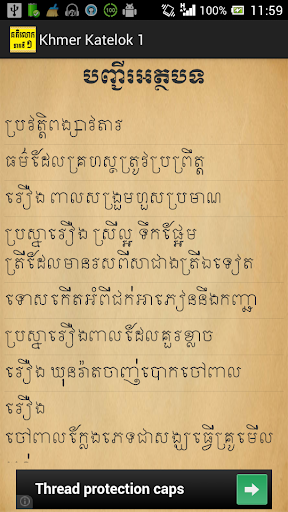 11:59
គតិលោក
ភាគទី ១
Khmer Katelok 1
បញ្ជីរអត្ថបទ
ប្រវត្តិពង្សាវតារ
ធម៌ដែលគ្រហស្ថត្រូវប្រព្រឹត្ត
រឿង ពាលសង្រួមហួសប្រមាណ
ប្រស្នារឿង ស្រីល្អ ទឹកផ្អែម
ត្រីដែលមានរសពីសាជាងត្រីឯទៀត
ទោស កើតអំពីជក់អាភៀននឹងកញ្ឆា
ប្រស្នារឿងពាលដែលគួរខ្លាច
រឿង ឃុនវ៉ាតចាញ់បោកចៅពាល
រឿង
ចៅពាលក្លែងភេទជាសង្ឃធ្វើគ្រូមើល
Thread protection caps